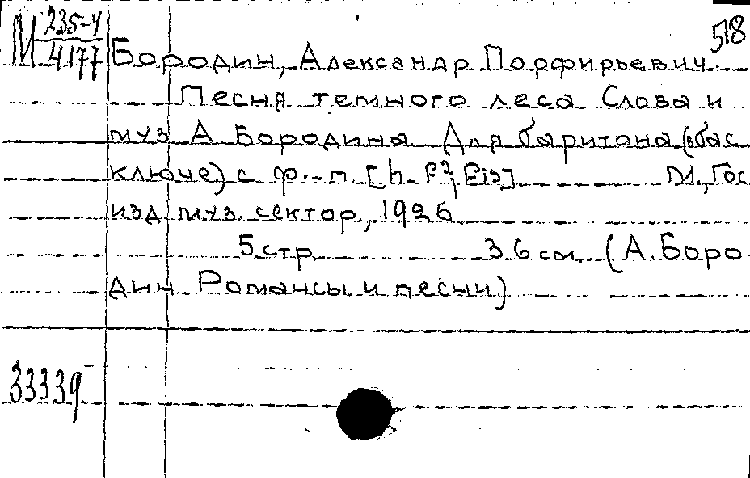 М 235-4
4177
518
Бородин, Александр Порфирьевич.
Песня темного леса Слова и
муз А Бородина Для баритона (в бас
ключе) с ф.-п. [h-
М., Гос
изд муз. сектор, 1926
5 стр 36 см. (А. Боро
дин Романсы и песни)
33339